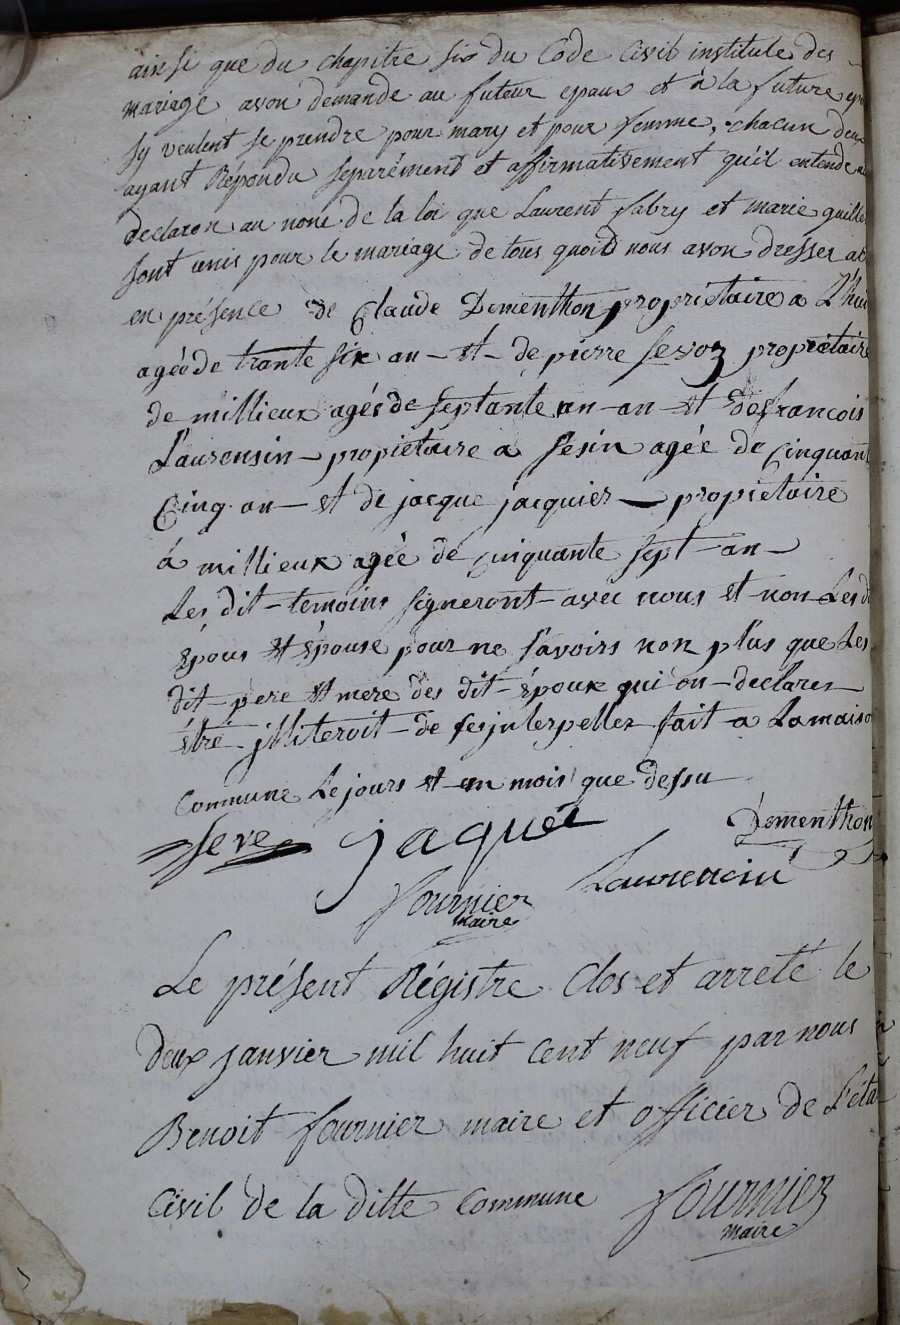 ainsi que du chapitre six du Code Civil institule des
mariage avon demande au futeur epaux et à la future
sy veulent se prendre pour mary et pour femme, chacun deux
ayant Répondu séparément et affirmativement qu'il entende
declaron au nom de la loi que Laurent fabry et marie guille
sont unis pour le mariage de tous quoid nous avon dresser
en présence de Claude Dementhon propriétaire a
agée de trante six an et de pierre sevoz propriétaire
de millieux agés de septante an et de francois
Laurensin propiétaire a sesin agée de Cinquant
Cinq an et de jacque jacquier propietaire
á millieux agée de cinquante sept an
Les dit temoins signeront avec nous et non Les d
époux et épouse pour ne savoirs non plus que Les
dit pere et mere des dit époux qui on declarer
être jlliteroit de ses jnterpeller fait a La maiso
Commune Le jours et an mois que dessu
seve jaquié Dementhon
fournier Laurencin
maire
Le présent Régistre Clos et arreté le
deux janvier mil huit cent neuf par nous
Benoit fournier maire et officier de L'éta
Civil de la ditte Commune fournier
maire